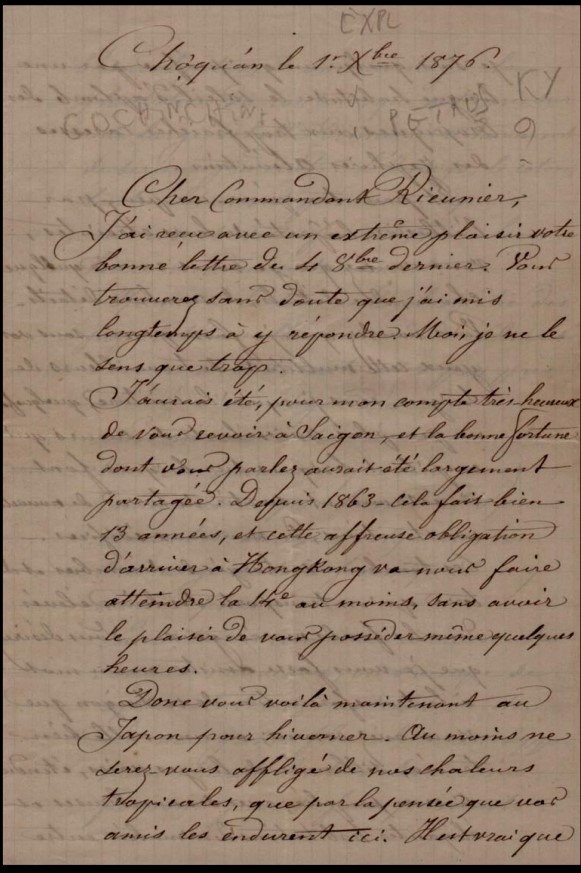 EXPL
Chợquán le 1er Xbre 1876.
KY
COCHINCHINE
PETRUS
9
Cher Commandant Rieunier,
J'ai reçu avec un extrême plaisir votre
bonne lettre du 4 8bre dernier. Vous
trouverez sans doute que j'ai mis
longtemps à y répondre. Moi, je ne le
sens que trop.
J'aurais été, pour mon compte très heureux
de vous revoir à Saigon, et la bonne fortune
dont vous parlez aurait été largement
partagée. Depuis 1863 - Cela fait bien
13 années, et cette affreuse obligation
d'arriver à HongKong va nous faire
atteindre la 14e au moins, sans avoir
le plaisir de vous posséder même quelques
heures.
Donc vous voilà maintenant au
Japon pour hiverner. Au moins ne
serez-vous affligé de nos chaleurs
tropicales, que par la pensée que vos
amis les endurent ici. Il est vrai que